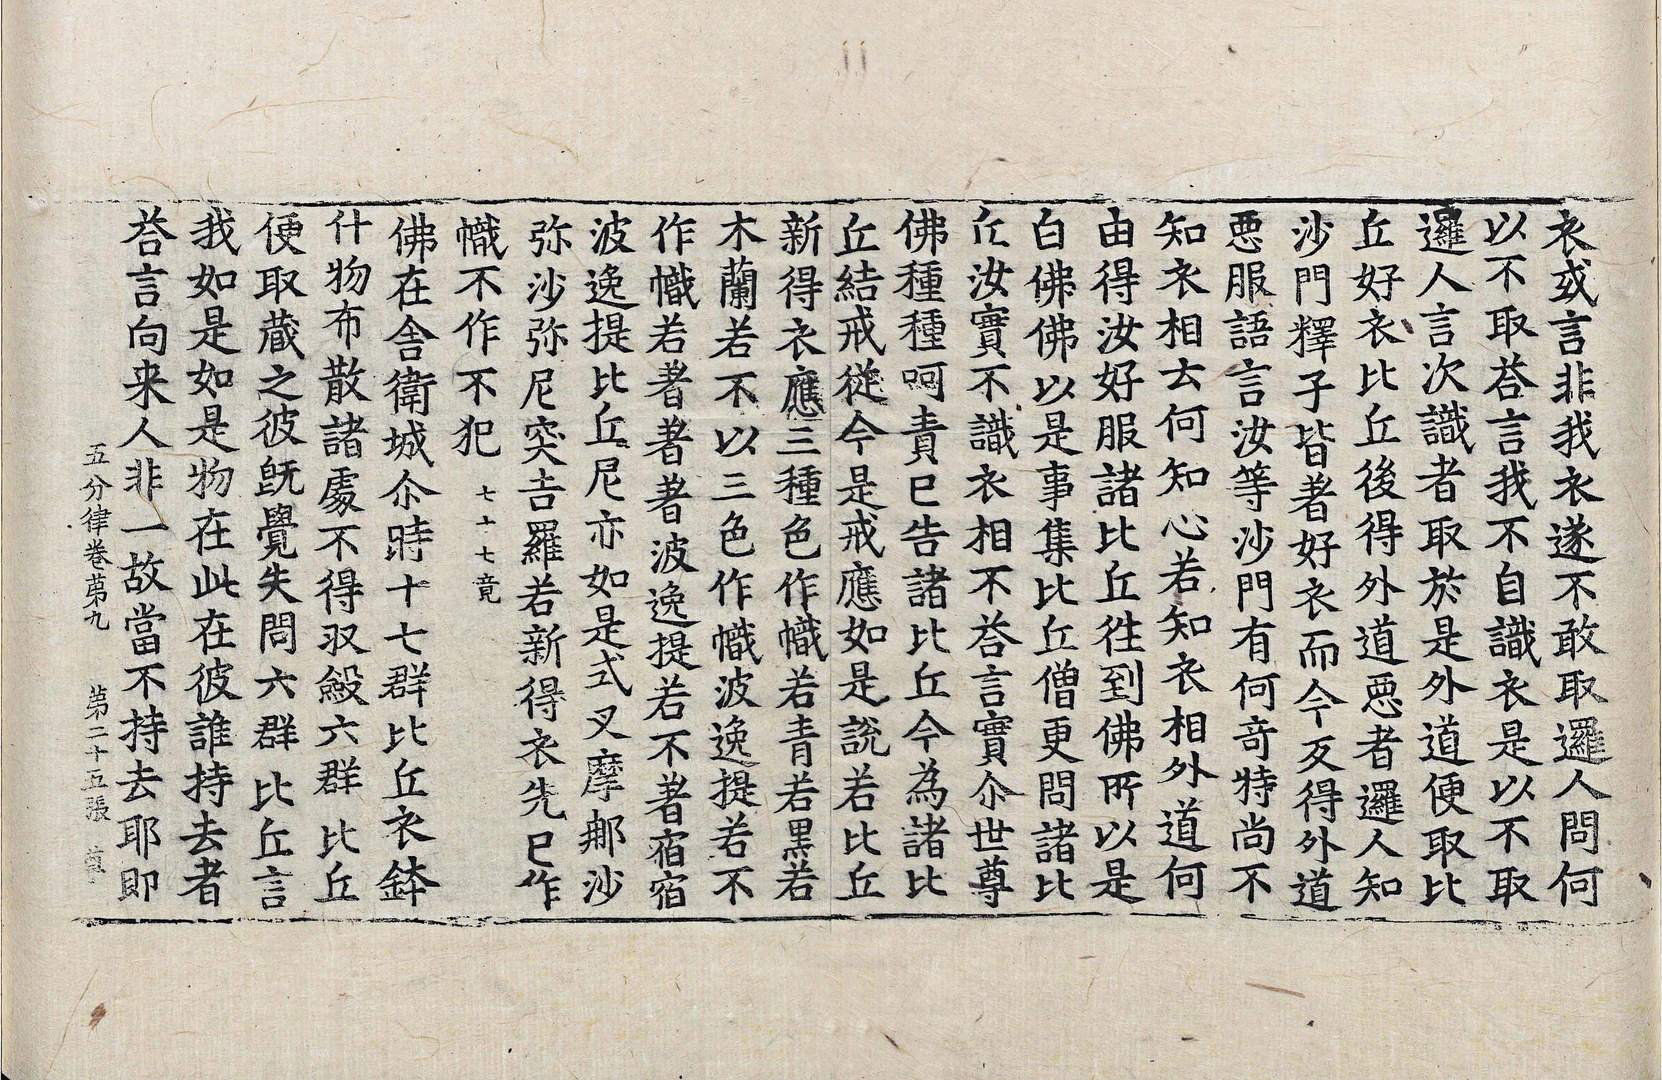 衣或言非我衣遂不敢取邏人問何
以不取荅言我不自識衣是以不取
邏人言次識者取於是外道便取比
丘好衣比丘後得外道惡者邏人知
沙門釋子皆著好衣而今反得外道
惡服語言汝等沙門有何竒特尚不
知衣相去何知心若知衣相外道何
由得汝好服諸比丘徃到佛所以是
白佛佛以是事集比丘僧更問諸比
丘汝實不識衣相不荅言實尒世尊
佛種種呵責已告諸比丘今為諸比
丘結戒從今是戒應如是說若比丘
新得衣應三種色作幟若青若黑若
木蘭若不以三色作幟波逸提若不
作幟若著著著波逸提若不著宿宿
波逸提比丘尼亦如是式叉摩郍沙
弥沙弥尼突吉羅若新得衣先已作
幟不作不犯 七十七竟
佛在舍衛城尒時十七群比丘衣鉢
什物布散諸處不得収斂六群比丘
便取藏之彼旣覺失問六群比丘言
我如是如是物在此在彼誰持去者
荅言向来人非一故當不持去耶即
五分律卷苐九 第二十五張